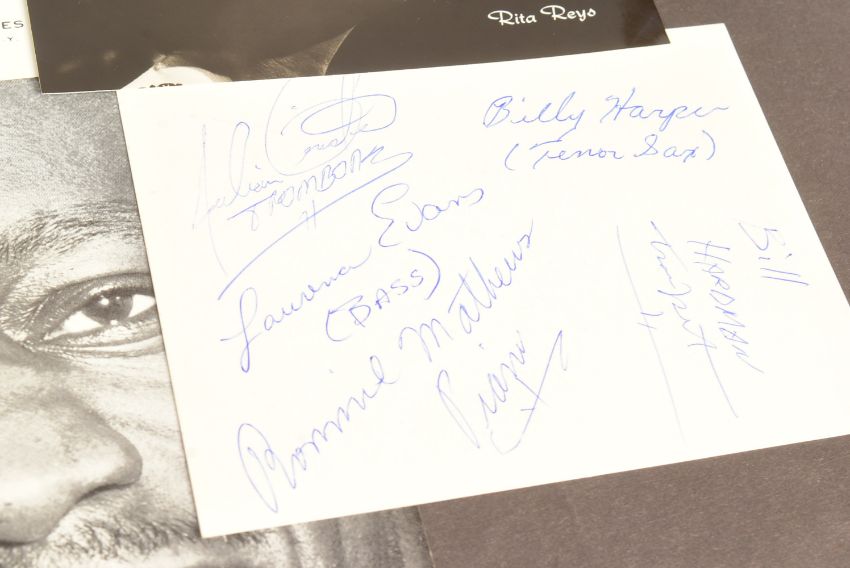 ES
Y.
Rita Reys
Julian
TROMBONE
Billy Harper
(Tenor Sax)
Laurence Evans
(BASS)
Ronnie Mathews
Piano
Bill
HARDMAN
trumpet